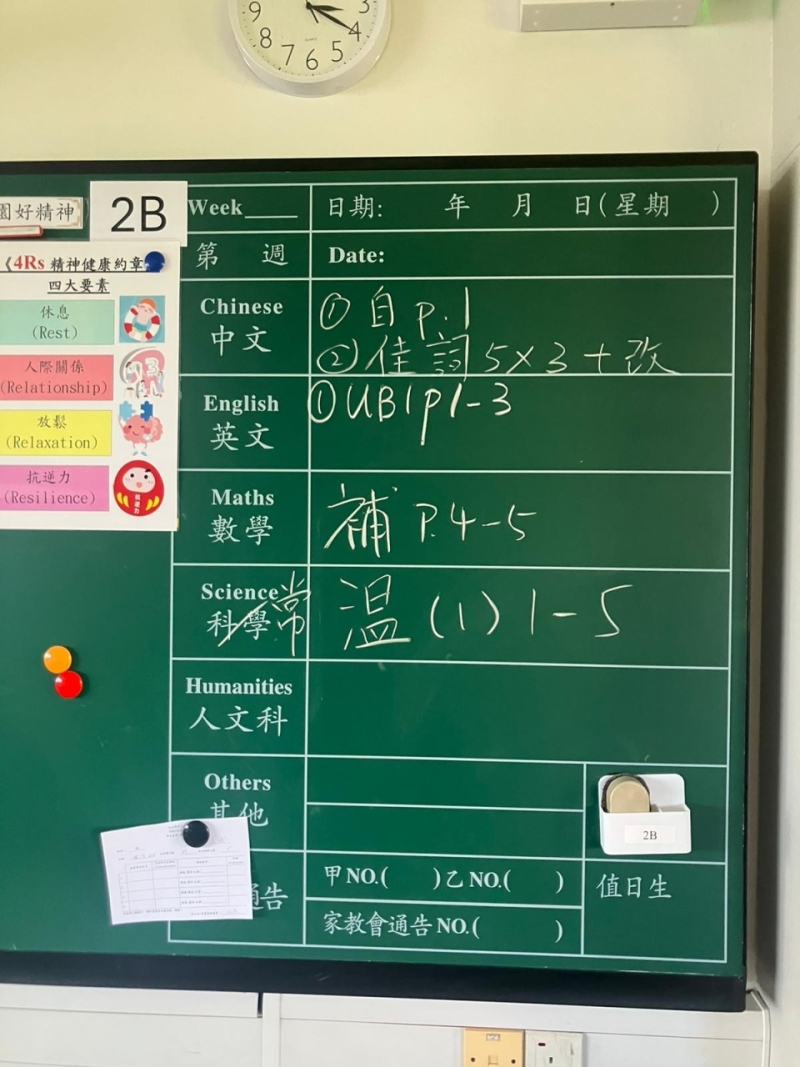 9
8
7
6
5
4
3
園好精神
2B
Week____
日期:　年　月　日(星期　)
《4Rs 精神健康約章
四大要素
第　週
Date:
休息
(Rest)
人際關係
(Relationship)
放鬆
(Relaxation)
抗逆力
(Resilience)
Chinese
中文
① 自 p.1
② 佳詞 5×3+改
English
英文
① UB1 p1-3
Maths
數學
補 P.4-5
Science
科學 常
溫 (1) 1-5
Humanities
人文科
Others
其他
2B
通告
甲 NO.(　)乙 NO.(　)
家教會通告 NO.(　)
值日生